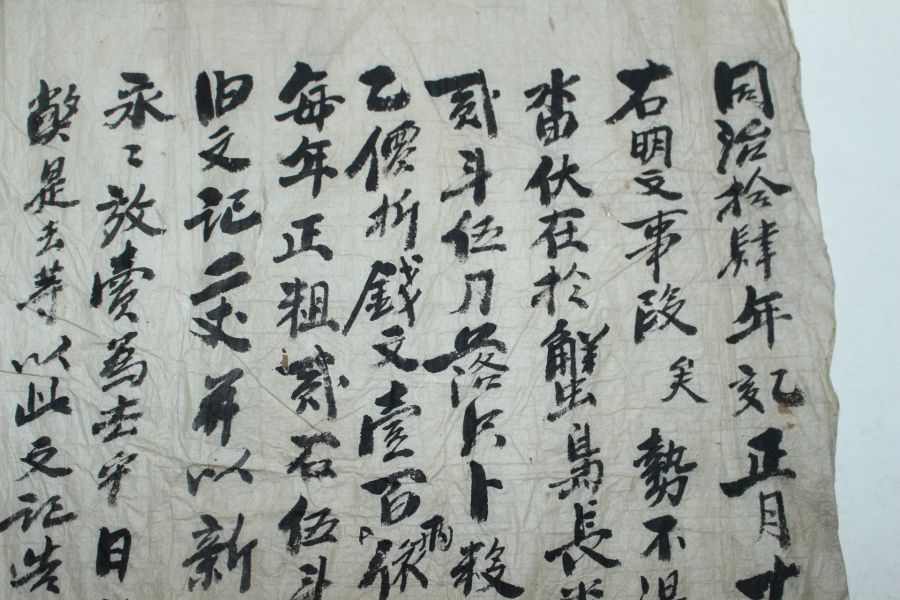 同治拾肆年乙亥正月廿
右明文事段矣勢不得
畓伏在於蟹島長
貳斗伍刀落只卜数
乙價折錢文壹百 兩
每年正粗貳石伍斗
旧文記二丈并以新
永〻放賣為去乎日
弊是去等以此文記告